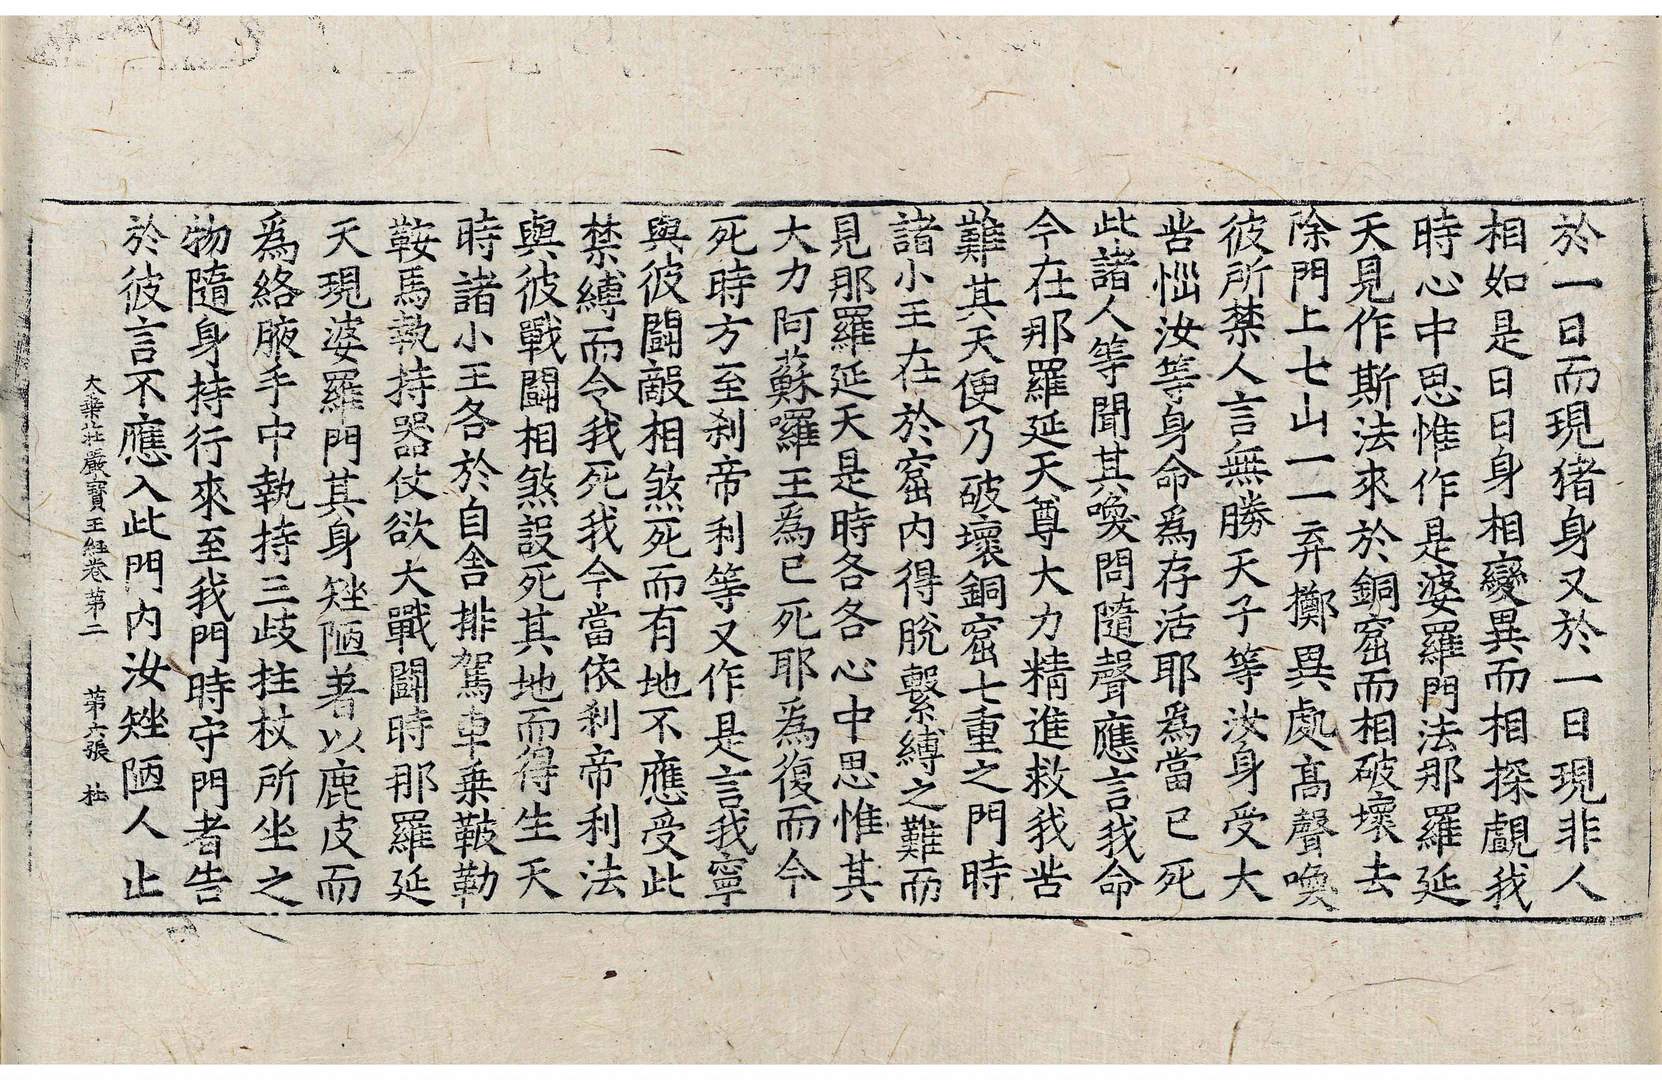 於一日而現猪身又於一日現非人
相如是日日身相變異而相探覰我
時心中思惟作是婆羅門法那羅延
天見作斯法來於銅窟而相破壞去
除門上七山一一弃擲異處高聲喚
彼所禁人言無勝天子等汝身受大
苦惱汝等身命為存活耶為當已死
此諸人等聞其喚問隨聲應言我命
今在那羅延天尊大力精進救我苦
難其天便乃破壞銅窟七重之門時
諸小王在於窟內得脫繫縛之難而
見那羅延天是時各各心中思惟其
大力阿蘇囉王為已死耶為復而今
死時方至剎帝利等又作是言我寧
與彼鬪敵相煞死而有地不應受此
禁縛而令我死我今當依剎帝利法
與彼戰鬪相煞設死其地而得生天
時諸小王各於自舍排駕車乗鞁勒
鞍馬執持器仗欲大戰鬪時那羅延
天現婆羅門其身矬陋著以鹿皮而
為絡腋手中執持三歧拄杖所坐之
物隨身持行來至我門時守門者告
於彼言不應入此門內汝矬陋人止
大乗莊嚴寶王經卷第二 第十六張 杜